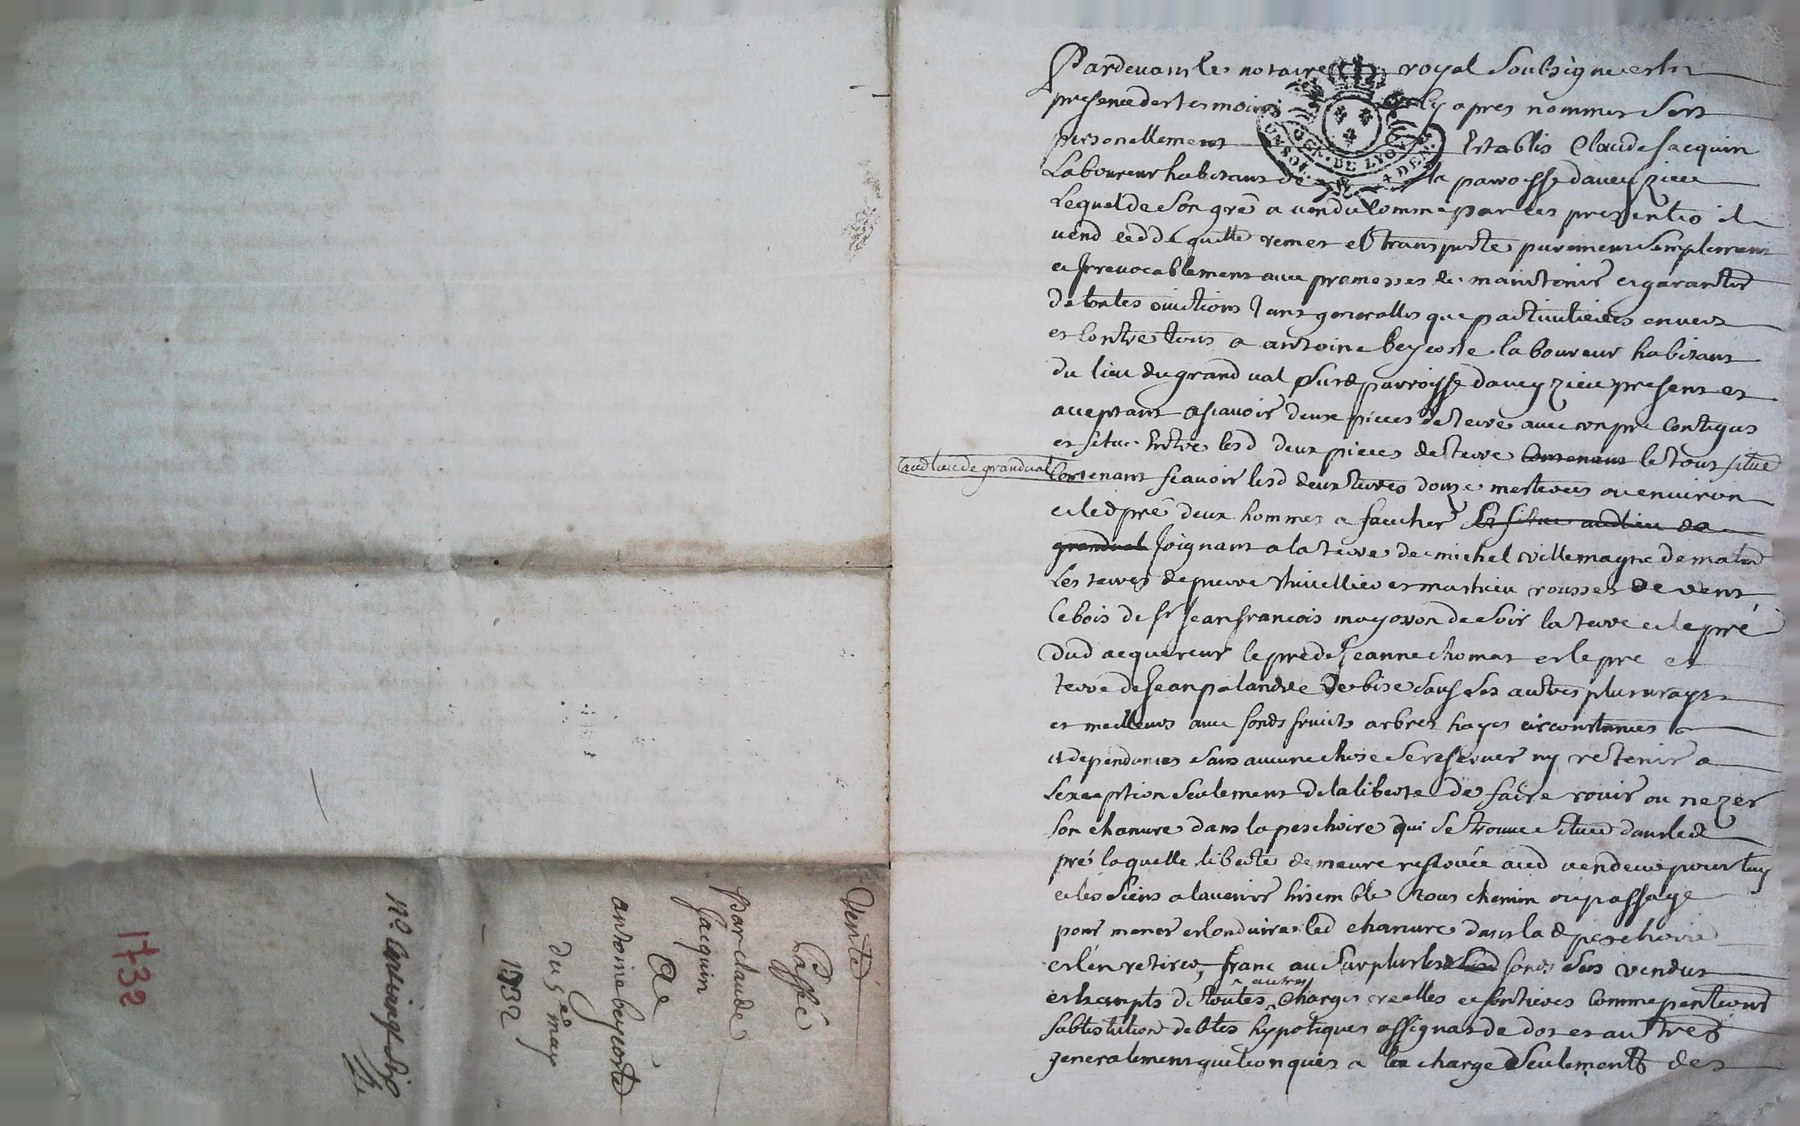 Pardevant le notaire royal Soubsigne et en
presence des tesmoins cy apres nommes sont
personellement Establis Claude Jacquin
Laboureur habitant de la parroisse daveyzieu
Lequel de Son gré a vendu Comme par ces presentes il
vend cedde quitte remet et transporte purement Semplement
et Irrevocablement avec promesses de maintenir et garantir
de toutes evictions tant generalles que particulieres envers
et Contre tous a antoine beycoste laboureur habitant
du lieu du grand val parroisse daveyzieu present et
acceptant ascavoir deux pieces de terre avec un pré Contigus
et situé Entre lesd deux pieces de terre Contenant le tout situé
aud lieu de grandval
Contenant scavoir lesd deux terres douze mesterees ou environ
et led pré deux hommes a faucher Et situé aud lieu de
grandval Joignant a la terre de michel villemagne de matin
Les terres de pierre et mathieu rousset de vent
le bois de sr Jean francois mayoron de Soir la terre et le pré
dud acquereur le pré de Jeanne chomat et le pré et
terre de Jean palandre de bise Sauf Les autres plus vrays
et meilleurs avec fonds fruits arbres hayes circonstances
et dependances Sans aucune chose Se reserver ny retenir a
Lexception Seulement de la liberté de faire rouir ou nezer
Son chanvre dans la peschoire qui Se trouve Situee dans led
pré laquelle liberté demeure reservée aud vendeur pour luy
et les Siens a lavenir Ensemble chemin ou passage
pour mener et Conduire led chanvre dans lad peschoire
et len retirer, franc au Surplus lesd fonds Sus vendus
autres
et Exempts de toutes Charges reelles et fontieres Comme pentions
Substitution debtes hypoteques assignat de dot et autres
generalement quelconques a la charge Seulement des
Vente
Passé
Par claude
Jacquin
A
antoine beycoste
du 5e may
1732
1732